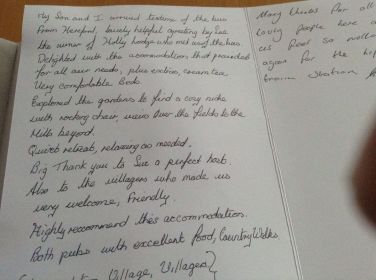 My Son and I arrived teatime off the bus
From Hereford, lovely helpful greeting by Sue
the owner of Holly Lodge who met us off the bus.
Delighted with the accomodation, that provided
for all our needs, plus extras, cream tea.
Very comfortable Beds.
Explored the gardens to find a cosy niche
with rocking chair, views over the fields to the
Hills beyond.
Quiet retreat, relaxing as needed.
Big Thank you to Sue a perfect host.
Also to the villagers who made us
very welcome, Friendly.
Highly recommend this accommodation.
Both pubs with excellent food, Country Walks
Village, Villagers
Many thanks For all
loving people here
us feel so
again for the
train station